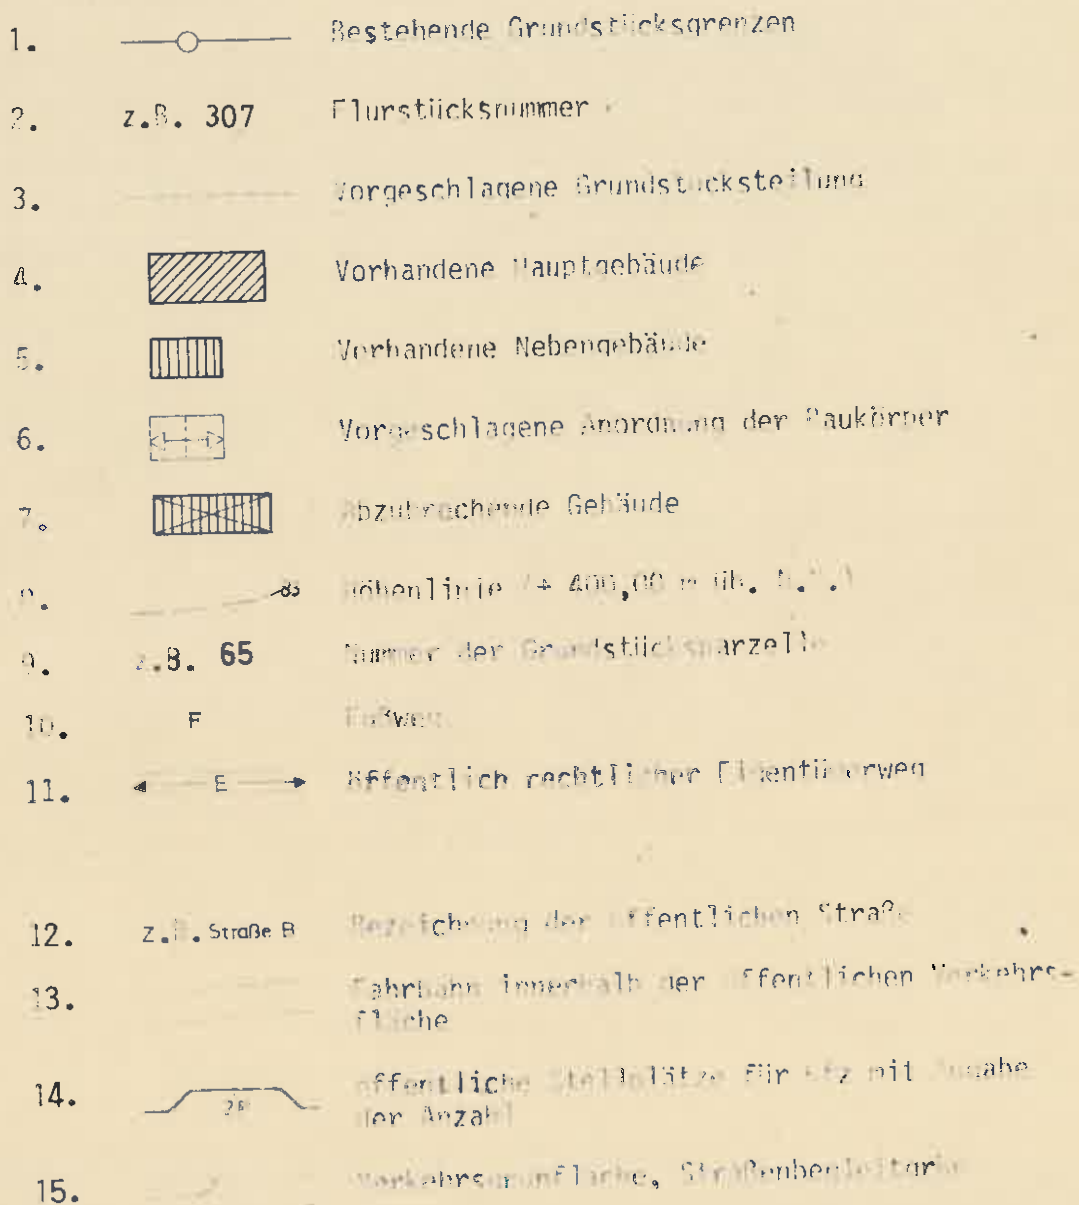 1. Bestehende Grundstücksgrenzen
2. z.B. 307 Flurstücksnummer
3. Vorgeschlagene Grundstücksteilung
4. Vorhandene Hauptgebäude
5. Vorhandene Nebengebäude
6. Vorgeschlagene Anordnung der Baukörper
7. Abzubrechende Gebäude
8. Höhenlinie (+ 400,00 m üh. N.N.)
9. z.B. 65 Nummer der Grundstücksparzelle
10. F Fußweg
11. E Öffentlich rechtlicher Eigentümerweg
12. z.B. Straße B Bezeichnung der öffentlichen Straße
13. Fahrbahn innerhalb der öffentlichen Verkehrs-
fläche
14. öffentliche Stellplätze für Kfz mit Angabe
der Anzahl
15. Verkehrsgrünfläche,